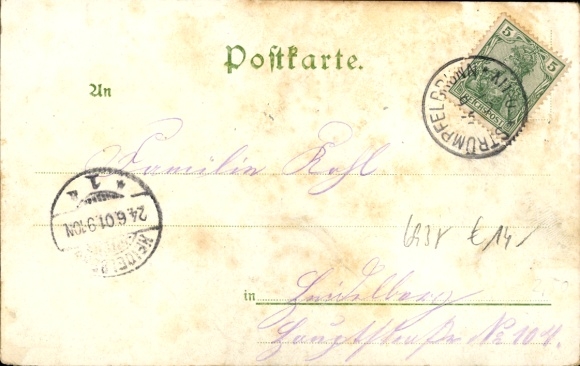 Postkarte.
An
5 5
REICHSPOST
STRÜMPFELBRUNN
Familie Kohl
1
24.6.01.9-10N
HEIDELB
€ 14,-
in Heidelberg
Hauptstraße No 104.